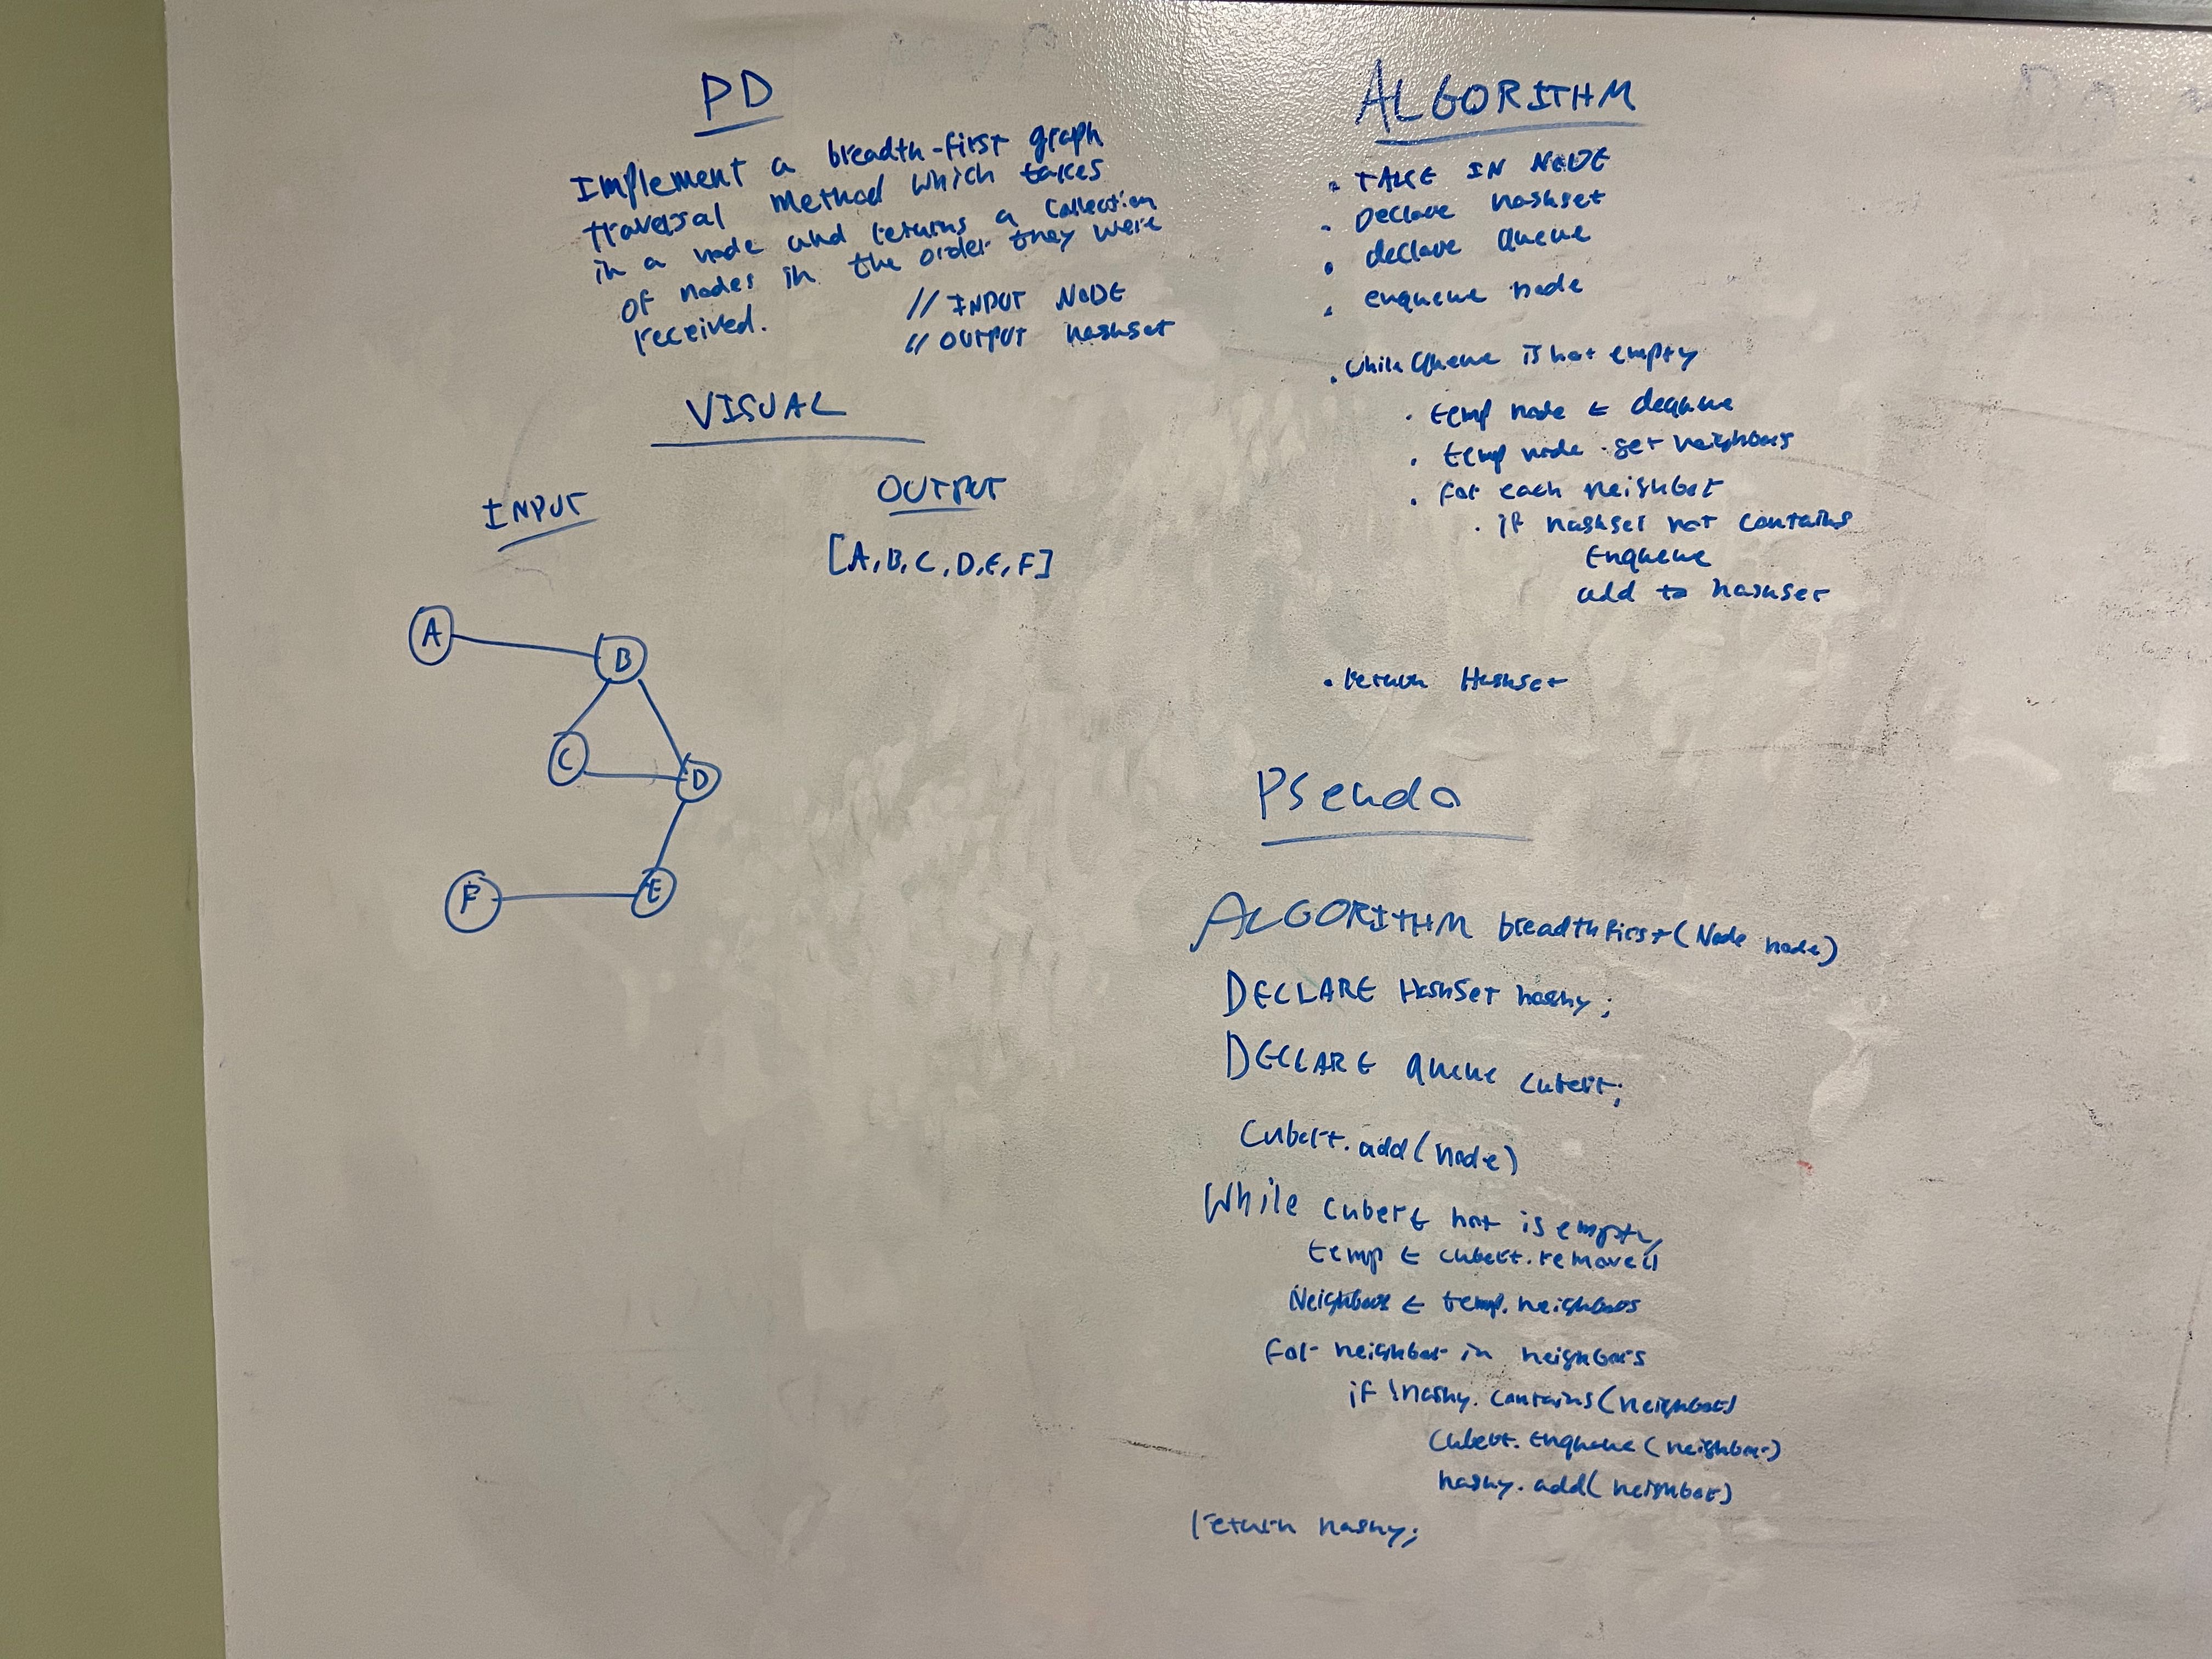 PD
Implement a breadth-first graph
traversal method which takes
in a node and returns a collection
of nodes in the order they were
received.
// INPUT NODE
// OUTPUT hashset
VISUAL
INPUT
OUTPUT
[A, B, C, D, E, F]
A
B
C
D
F
E
ALGORITHM
• TAKE IN NODE
• Declare hashset
• declare Queue
• enqueue node
• while Queue is not empty
• temp node ← dequeue
• temp node . get neighbors
• for each neighbor
• if hashset not contains
Enqueue
add to hashset
• return Hashset
Pseudo
ALGORITHM breadthfirst(Node node)
DECLARE HashSet hashy;
DECLARE Queue cubert;
Cubert.add(node)
While cubert not is empty
temp ← cubert.remove()
Neighbors ← temp.neighbors
for neighbor in neighbors
if !hashy.contains(neighbor)
Cubert.Enqueue(neighbor)
hashy.add(neighbor)
return hashy;